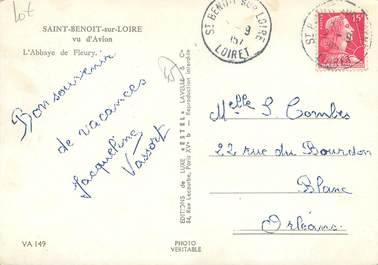 Lot
SAINT-BENOIT-sur-LOIRE
vu d'Avion
L'Abbaye de Fleury.
Bon souvenir
de vacances
Jacqueline
Vassort
VA 149
PHOTO
VERITABLE
EDITIONS de LUXE "ESTEL" LAVELLE & Cie
84, Rue Lecourbe, Paris XVe - Reproduction interdite
ST BENOIT SUR LOIRE
LOIRET
15F
Melle S Combes
22 rue du Bourdon
Blanc
Orléans